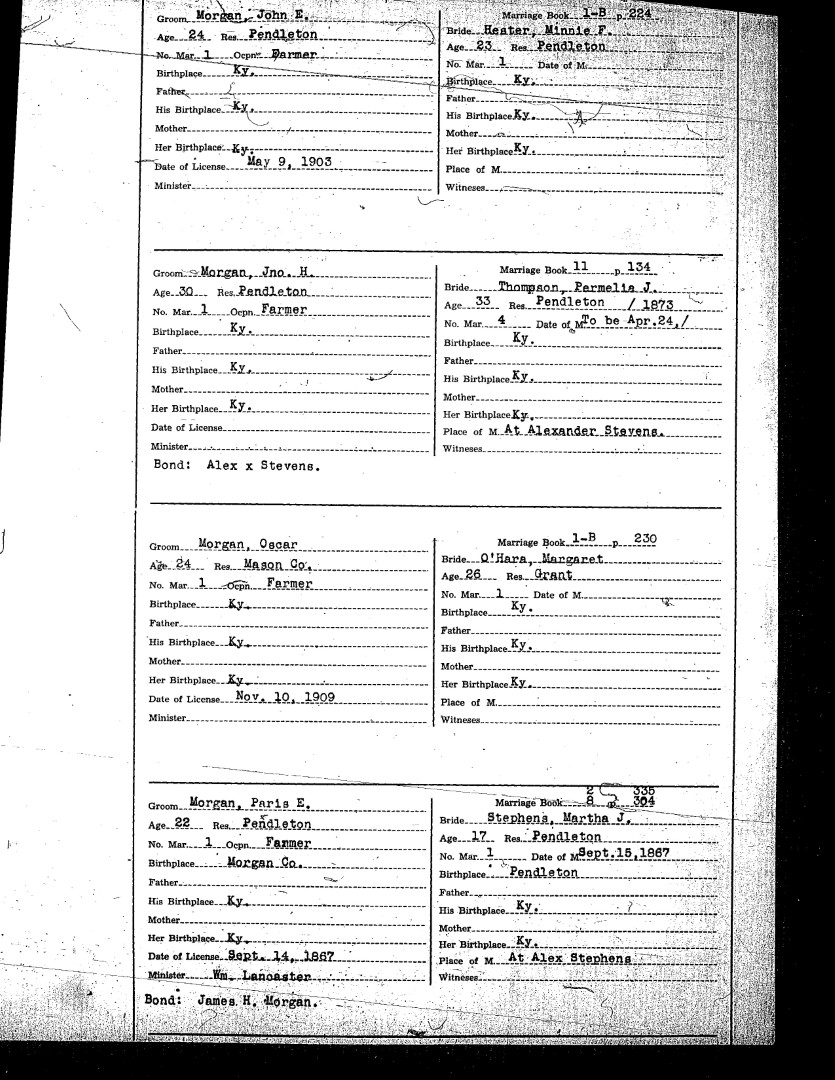 Groom Morgan, John E.
Age 24 Res. Pendleton
No. Mar. 1 Ocpn. Farmer
Birthplace Ky.
Father
His Birthplace Ky.
Mother
Her Birthplace Ky.
Date of License May 9, 1903
Minister
Marriage Book 1-B p. 224
Bride Hester, Minnie F.
Age 23 Res. Pendleton
No. Mar. 1 Date of M.
Birthplace Ky.
Father
His Birthplace Ky.
Mother
Her Birthplace Ky.
Place of M.
Witneses
Groom Morgan, Jno. H.
Age 30 Res. Pendleton
No. Mar. 1 Ocpn. Farmer
Birthplace Ky.
Father
His Birthplace Ky.
Mother
Her Birthplace Ky.
Date of License
Minister
Bond: Alex x Stevens.
Marriage Book 11 p. 134
Bride Thompson, Permelia J.
Age 33 Res. Pendleton / 1873
No. Mar. 4 Date of M. To be Apr.24,/
Birthplace Ky.
Father
His Birthplace Ky.
Mother
Her Birthplace Ky.
Place of M. At Alexander Stevens.
Witneses
Groom Morgan, Oscar
Age 24 Res. Mason Co.
No. Mar. 1 Ocpn. Farmer
Birthplace Ky.
Father
His Birthplace Ky.
Mother
Her Birthplace Ky.
Date of License Nov. 10, 1909
Minister
Marriage Book 1-B p. 230
Bride O'Hara, Margaret
Age 26 Res. Grant
No. Mar. 1 Date of M.
Birthplace Ky.
Father
His Birthplace Ky.
Mother
Her Birthplace Ky.
Place of M.
Witneses
Groom Morgan, Paris E.
Age 22 Res. Pendleton
No. Mar. 1 Ocpn. Farmer
Birthplace Morgan Co.
Father
His Birthplace Ky.
Mother
Her Birthplace Ky.
Date of License Sept. 14, 1867
Minister Wm. Lancaster
Bond: James H. Morgan.
2 335
Marriage Book 8 p. 304
Bride Stephens, Martha J.
Age 17 Res. Pendleton
No. Mar. 1 Date of M. Sept.15,1867
Birthplace Pendleton
Father
His Birthplace Ky.
Mother
Her Birthplace Ky.
Place of M. At Alex Stephens
Witneses